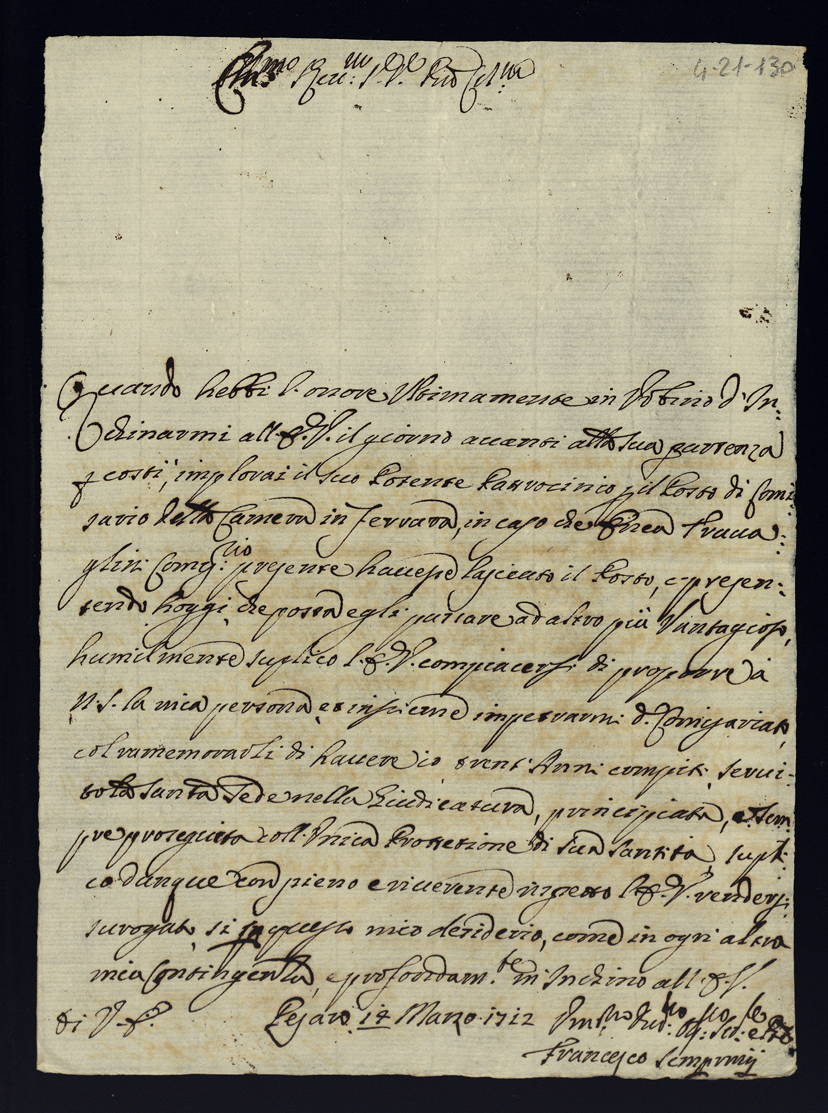 4-21-130
Ill.mo Rev.mo S.re P.ne Col.mo
Quando hebbi l'onore Ultimamente in Urbino d'In-
chinarmi all' E.V. il giorno avanti alla sua partenza
p costì, implorai il suo Potente Patrocinio p il Posto di Comi-
sario della Camera in Ferrara, in caso che Enea Fraca-
glini Comiss.rio presente havesse lasciato il Posto, e presen-
tendo hoggi, che possa egli passare ad altro più Vantagioso,
humilmente suplico l'E.V. compiacersi di proporre à
N.S. la mia persona, et insieme impetrarmi d.o Comisariato,
col ramemorarli di havere io trent'Anni compiti, servi-
to la Santa Sede nella Giudicatura, principiata, e sem-
pre proseguita coll'Unica Protetione di Sua Santità, supli-
co dunque con pieno e riverente ingresso l'E.V. rendersi
surogato, si in questo mio desiderio, come in ogni altra
mia Contingenza, e profondam.te m'Inchino all'E.V.
Di V.E. Pesaro 14 Marzo 1712
Francesco Sempronij